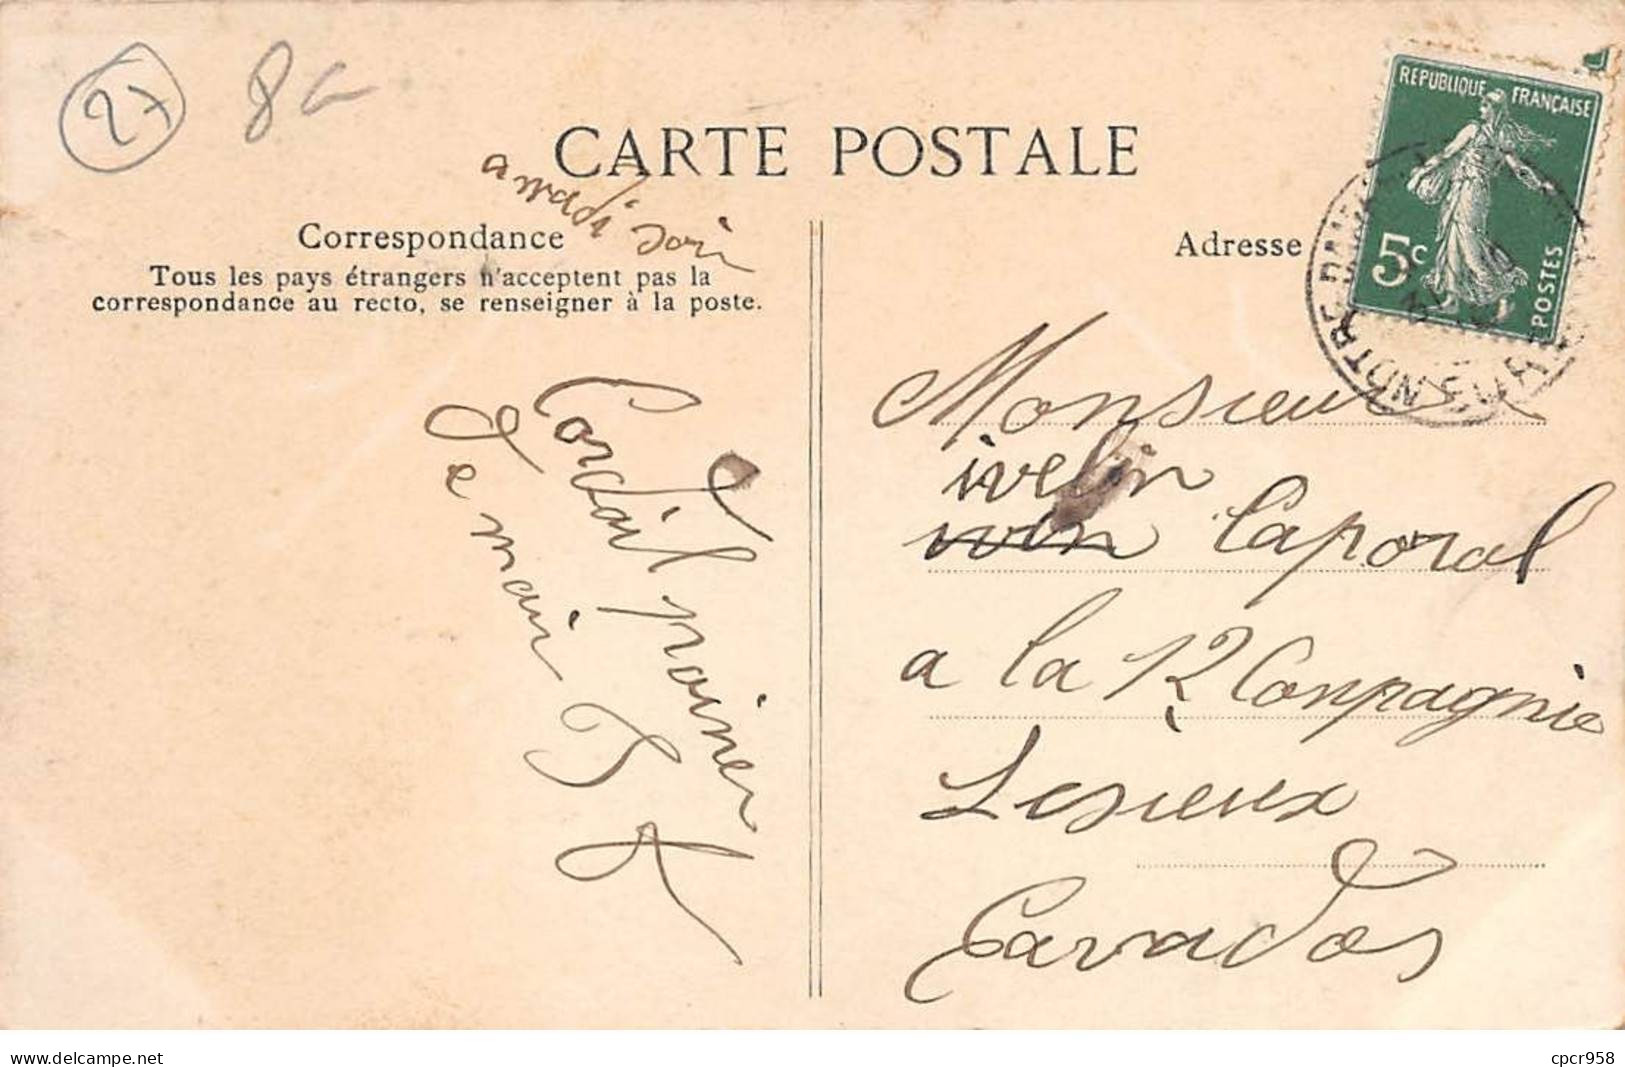 27
CARTE POSTALE
a mardi soir
Correspondance
Tous les pays étrangers n'acceptent pas la
correspondance au recto, se renseigner à la poste.
Adresse
REPUBLIQUE FRANÇAISE
5c
POSTES
NOTRE DAME
Cordial
de main
Monsieur
ivelin
Caporal
a la 12 Conpagnie
Lesieux
Cavados
www.delcampe.net
cpcr958